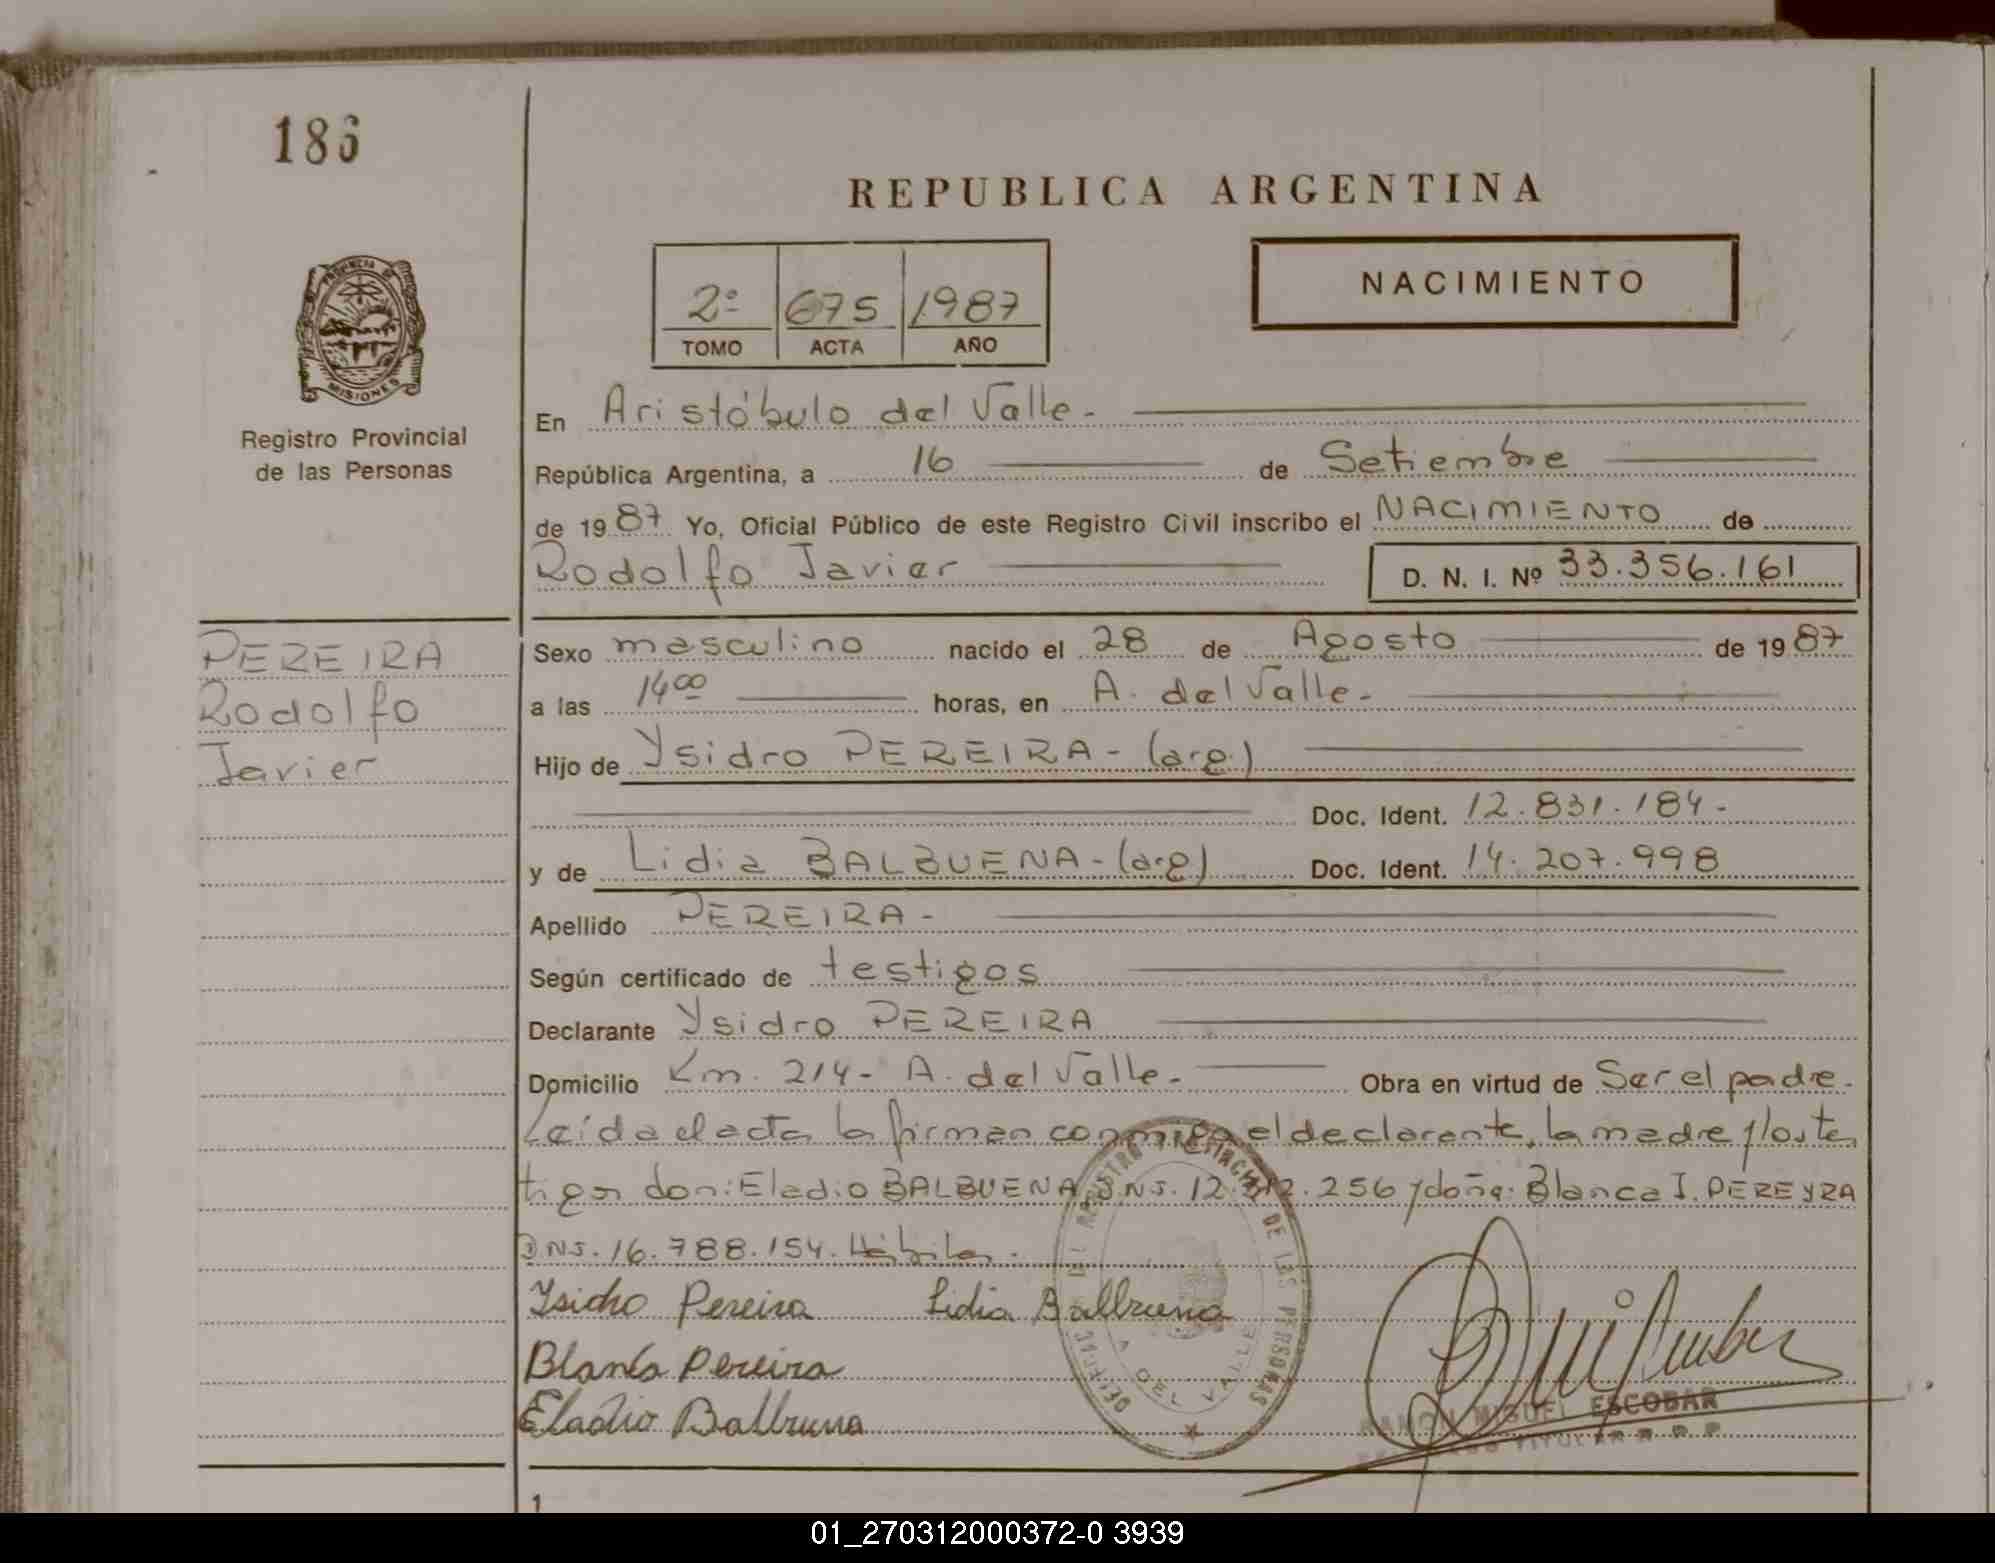 186
REPUBLICA ARGENTINA
PROVINCIA DE
MISIONES
Registro Provincial
de las Personas
2º 675 1987
TOMO ACTA AÑO
NACIMIENTO
En Aristóbulo del Valle.-
República Argentina, a 16 de Setiembre
de 1987 Yo, Oficial Público de este Registro Civil inscribo el NACIMIENTO de
Rodolfo Javier D. N. I. Nº 33.356.161
PEREIRA
Rodolfo
Javier
Sexo masculino nacido el 28 de Agosto de 1987
a las 14 00 horas, en A. del Valle.-
Hijo de Ysidro PEREIRA - (arg)
Doc. Ident. 12.831.184.-
y de Lidia BALBUENA - (arg) Doc. Ident. 14.207.998
Apellido PEREIRA -
Según certificado de testigos
Declarante Ysidro PEREIRA
Domicilio Km. 214 - A. del Valle.- Obra en virtud de Ser el padre.
Leída el acta la firman conmigo el declarante, la madre y los tes
tigos don: Eladio BALBUENA D.N.I. 12. .256 y doña: Blanca I. PEREYRA
D.N.I. 16.788.154. Hábiles.
Isidro Pereira Lidia Balbuena
Blanca Pereira
Eladio Balbuena
DEL REGISTRO PROVINCIAL DE LAS PERSONAS
A DEL VALLE
RAMON MIGUEL ESCOBAR
TITULAR R P P
1
01_270312000372-0 3939